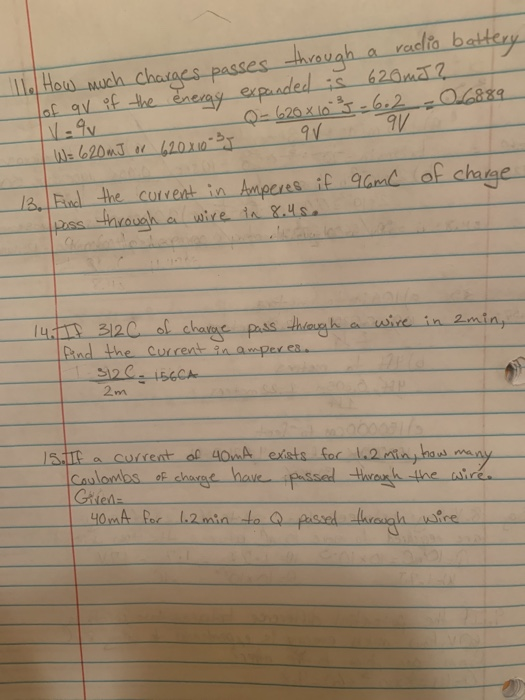 11. How much charges passes through a radio battery
of 9V if the energy expanded is 620mJ?
V=9v Q= 620x10⁻³J = 6.2 = 0.6889
9V 9V
W= 620mJ or 620x10⁻³J
13. Find the current in Amperes if 96mC of charge
pass through a wire in 8.4s.
14. If 312C of charge pass through a wire in 2min,
find the current in amperes.
312C = 156CA
2m
15. If a current of 40mA exists for 1.2 min, how many
Coulombs of charge have passed through the wire.
Given=
40mA for 1.2min to Q passed through wire